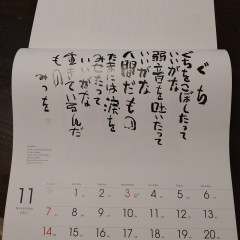 ぐち
ぐちをこぼしたって
いいがな
弱音を吐いたって
いいがな
人間だもの
たまには涙を
みせたって
いいがな
生きているんだ
もの
みつを
11
November
1 2 3 4 5 6
7 8 9 10 11 12 13
14 15 16 17 18 19 20